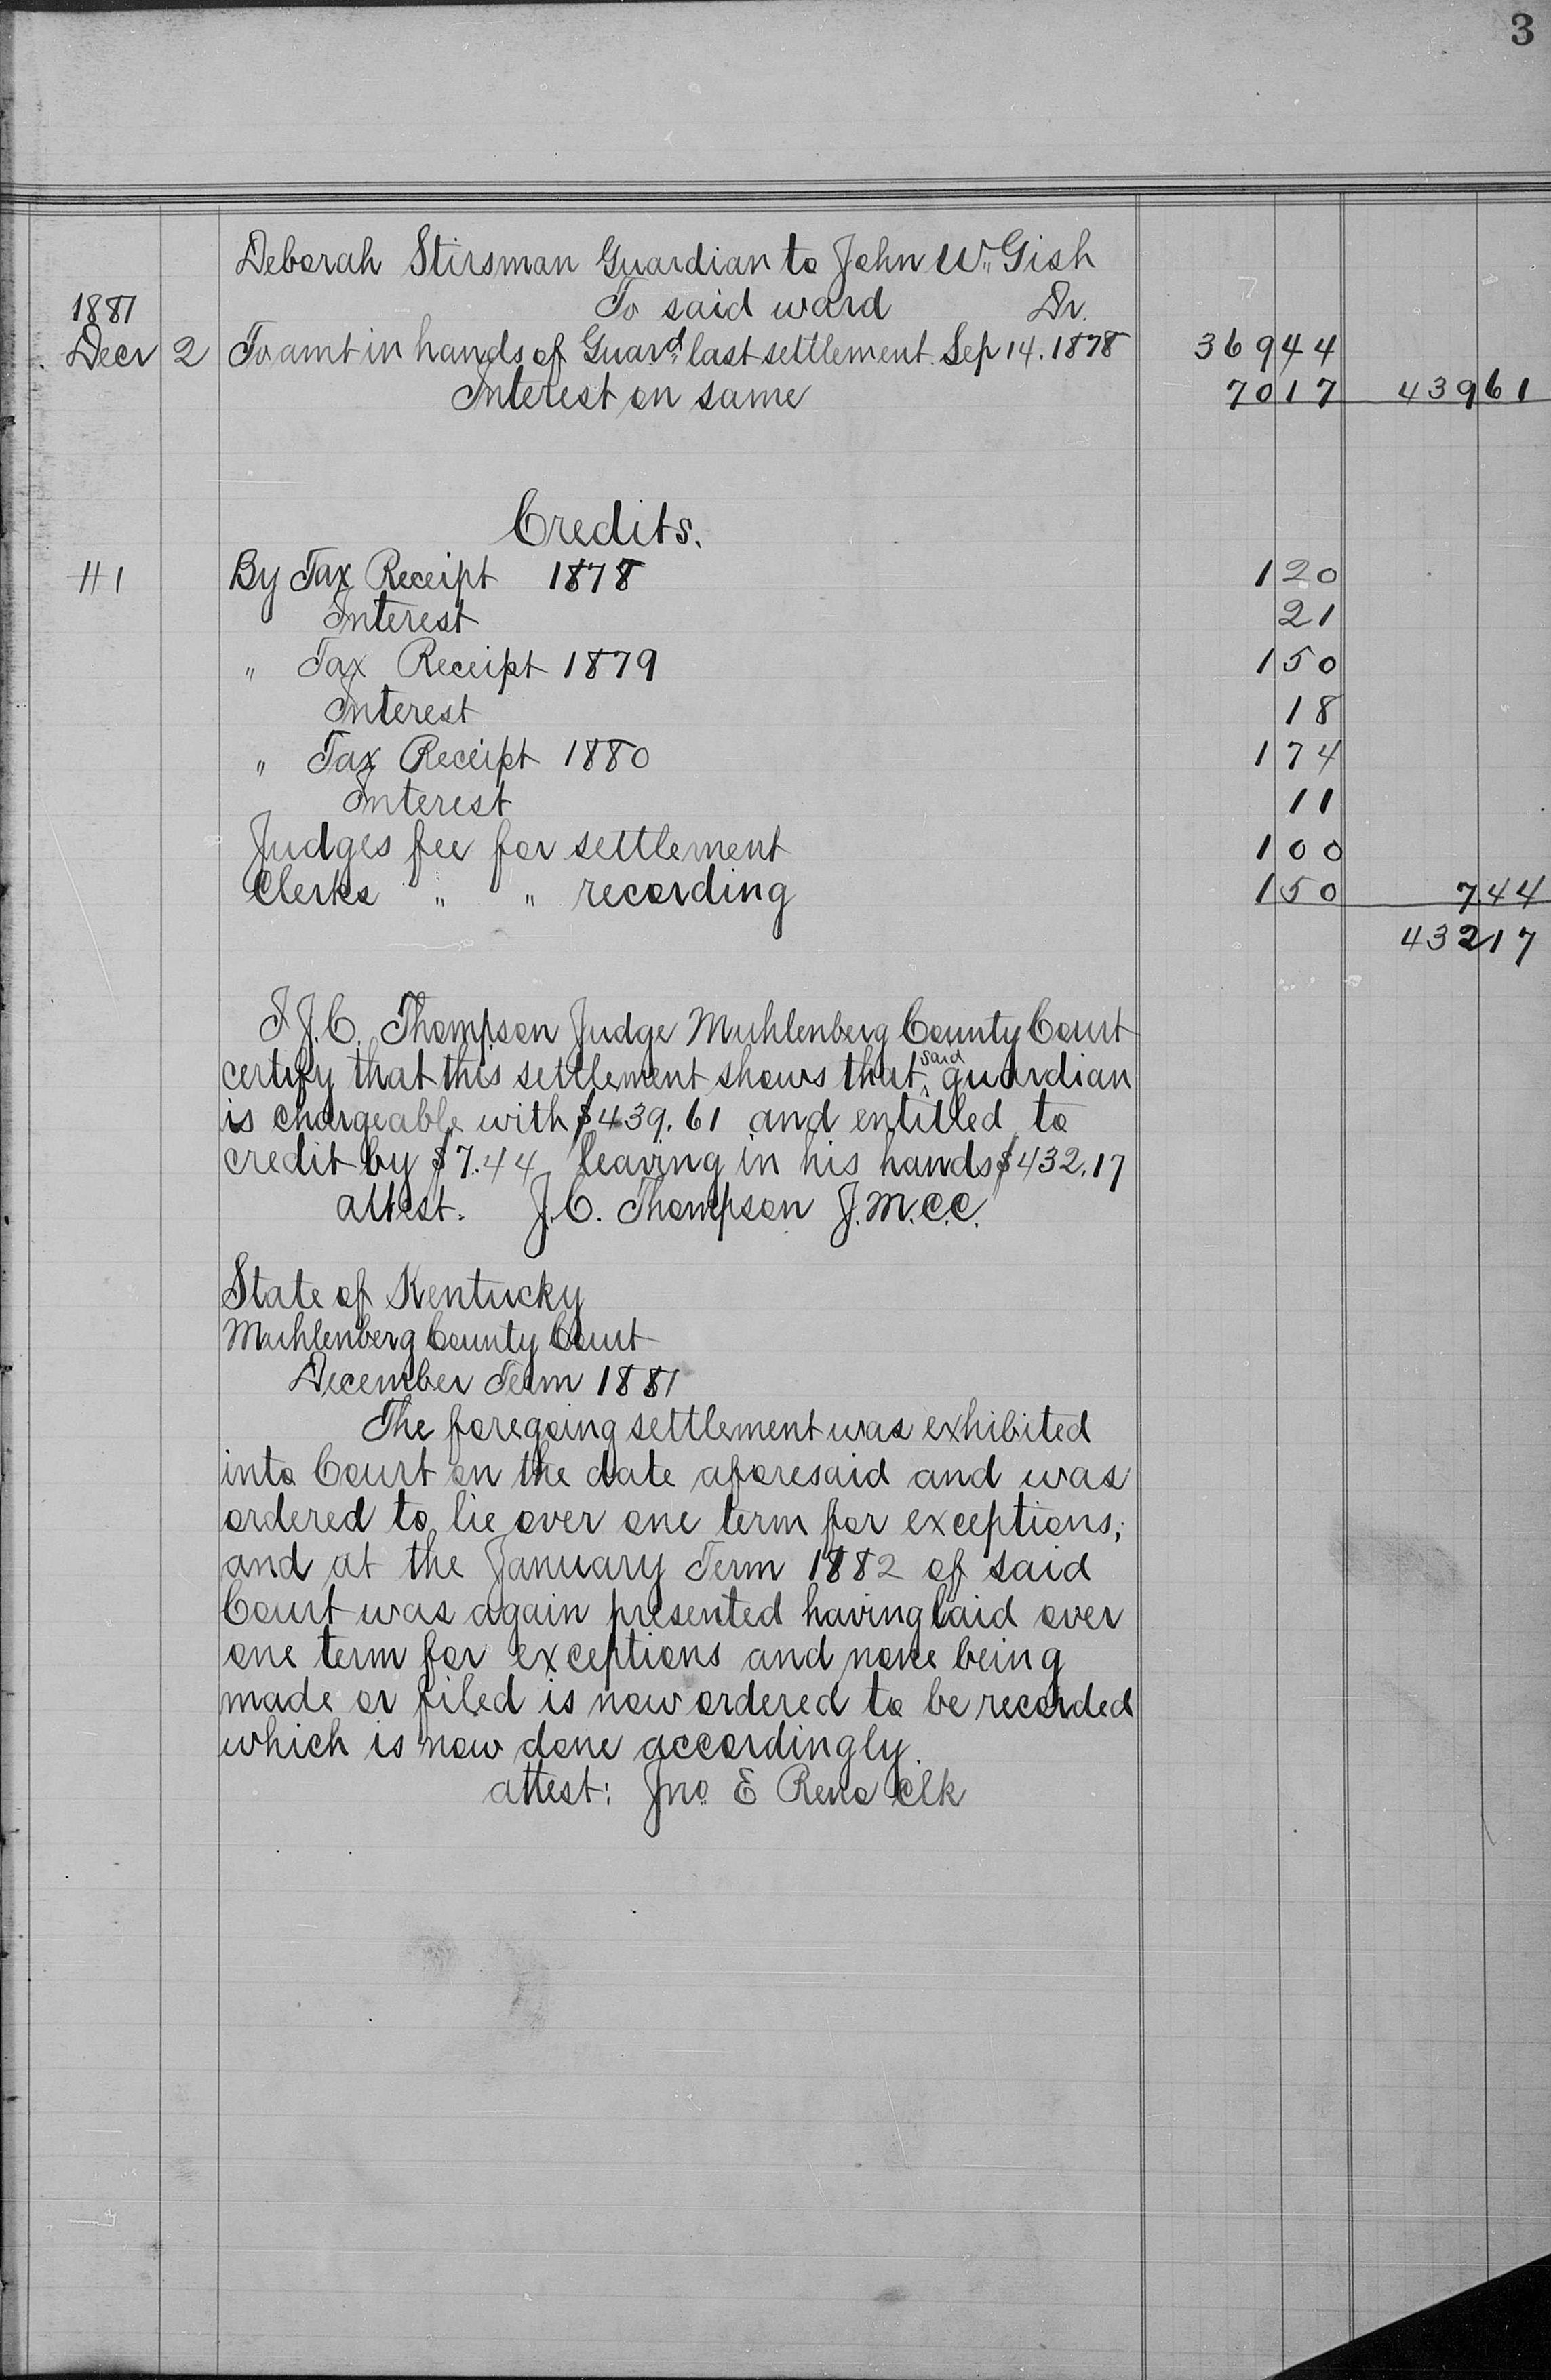 3
Deborah Stirsman Guardian to John W. Gish
1881 To said ward Dr.
Decr 2 To amt in hands of Guard. last settlement Sep 14. 1878 369 44
Interest on same 70 17 439 61
Credits.
# 1 By Tax Receipt 1878 1 20
Interest 21
" Tax Receipt 1879 1 50
Interest 18
" Tax Receipt 1880 1 74
Interest 11
Judges fee for settlement 1 00
Clerks " " recording 1 50 7 44
432 17
I J.C. Thompson Judge Muhlenberg County Court
certify that this settlement shows that said guardian
is chargeable with $439.61 and entitled to
credit by $7.44 leaving in his hands $432.17
attest. J.C. Thompson J.M.C.C.
State of Kentucky
Muhlenberg County Court
December Term 1881
The foregoing settlement was exhibited
into Court on the date aforesaid and was
ordered to lie over one term for exceptions;
and at the January Term 1882 of said
Court was again presented having laid over
one term for exceptions and none being
made or filed is now ordered to be recorded
which is now done accordingly.
attest: Jno E Reno Clk